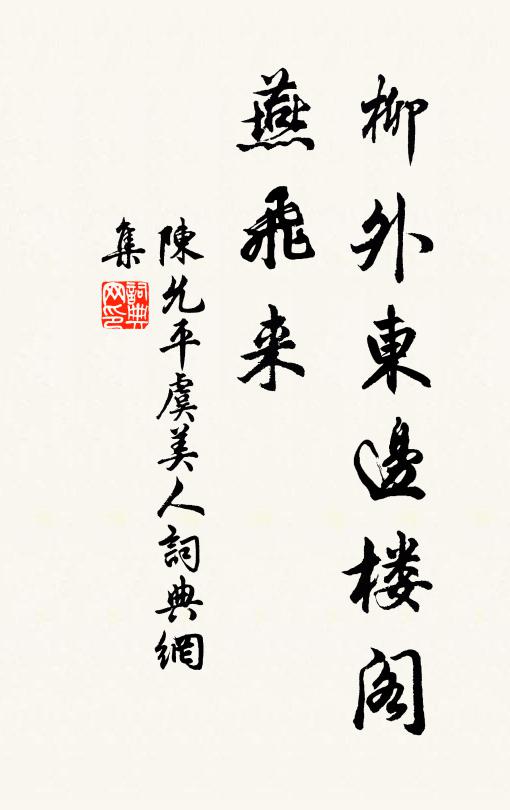 柳外東邊楼阁
燕飛来
陳允平虞美人詞典網
集
詞典
网印